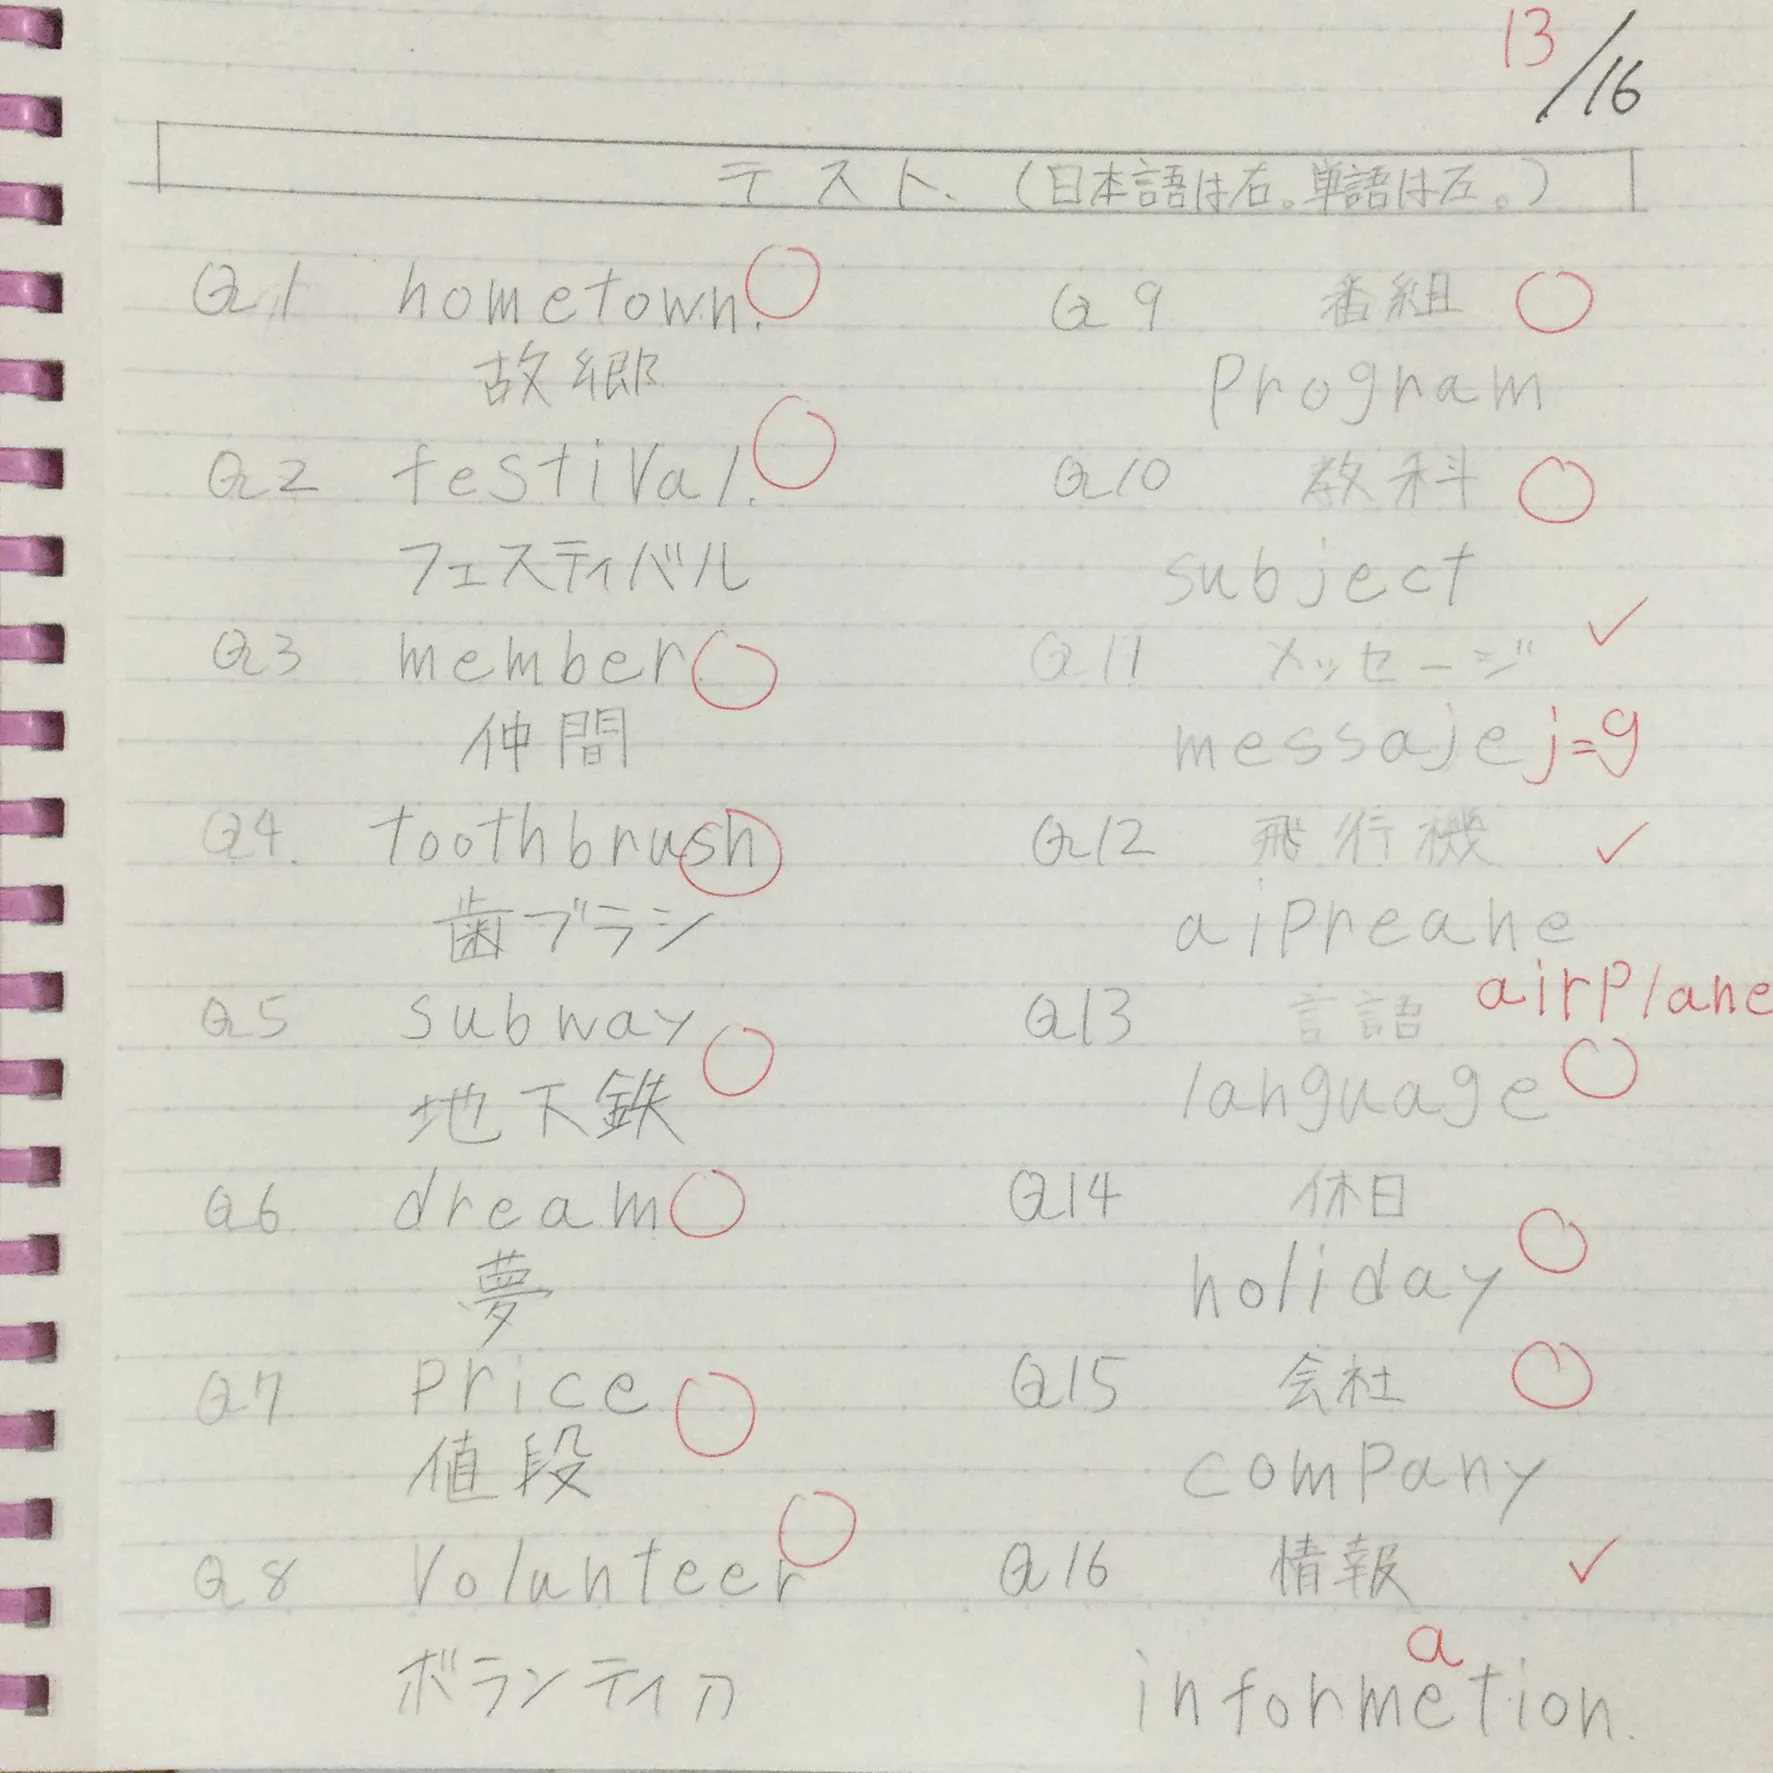 13/16
テスト.(日本語は右。単語は左。)
Q1 hometown.
故郷
Q2 festival.
フェスティバル
Q3 member.
仲間
Q4. toothbrush
歯ブラシ
Q5 subway
地下鉄
Q6 dream
夢
Q7 price
値段
Q8 Volunteer
ボランティア
Q9 番組
Program
Q10 教科
subject
Q11 メッセージ
messaje j=g
Q12 飛行機
aipreane
airplane
Q13 言語
language
Q14 休日
holiday
Q15 会社
company
Q16 情報
a
informetion.